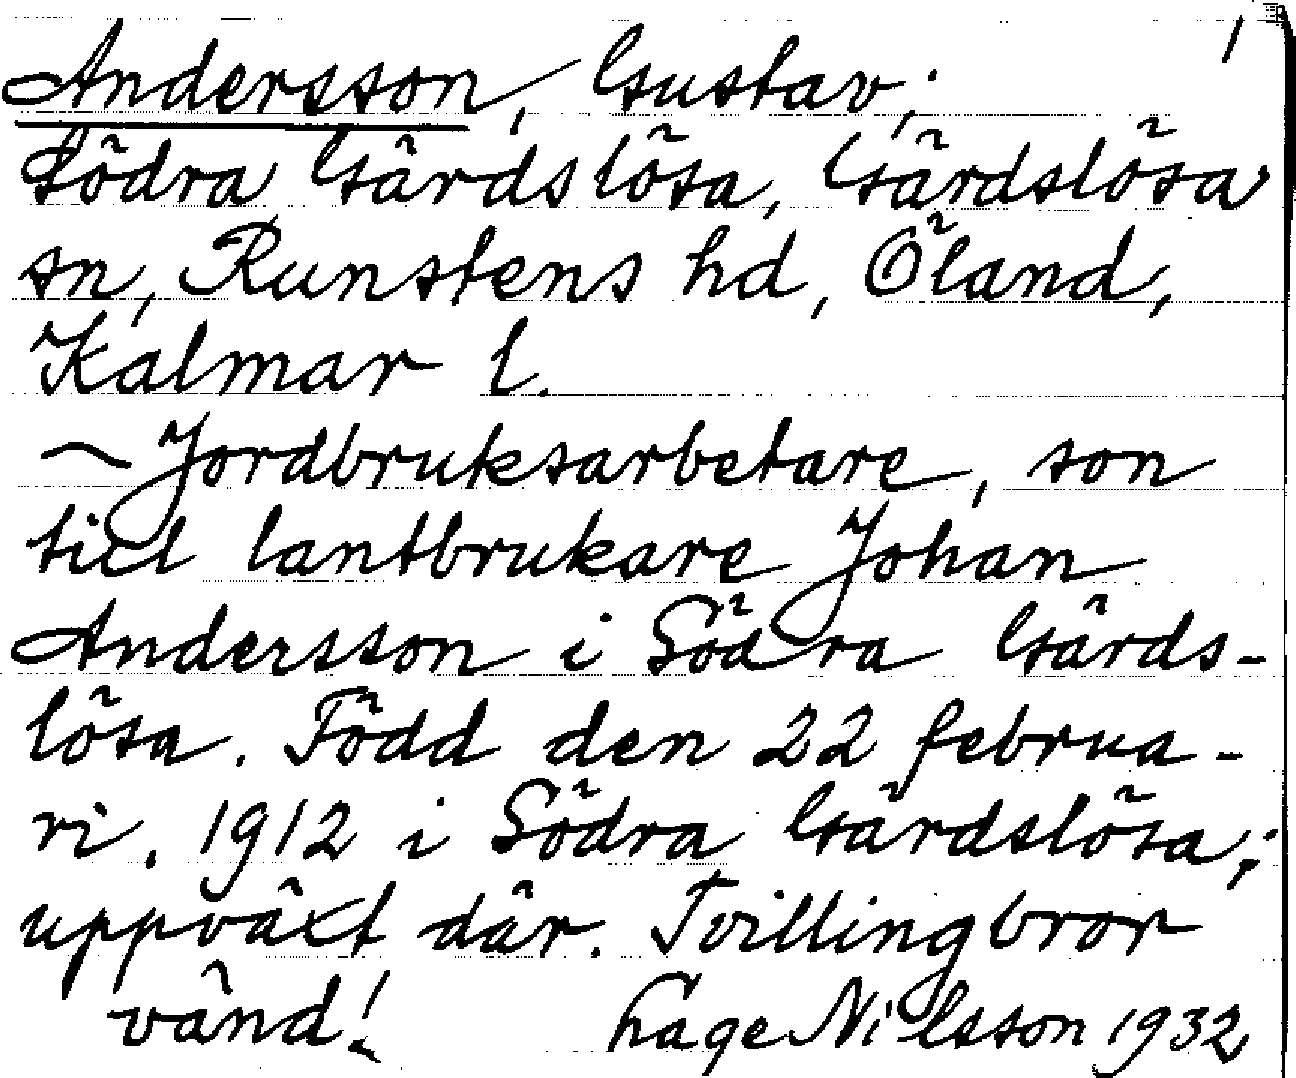 Andersson, Gustav; 1
Södra Gärdslösa, Gärdslösa
sn, Runstens hd, Öland,
Kalmar l.
~ Jordbruksarbetare, son
till lantbrukare Johan
Andersson i Södra Gärds-
lösa. Född den 22 februa-
ri. 1912 i Södra Gärdslösa;
uppväxt där. Tvillingbror
vänd! Hage Nilsson 1932